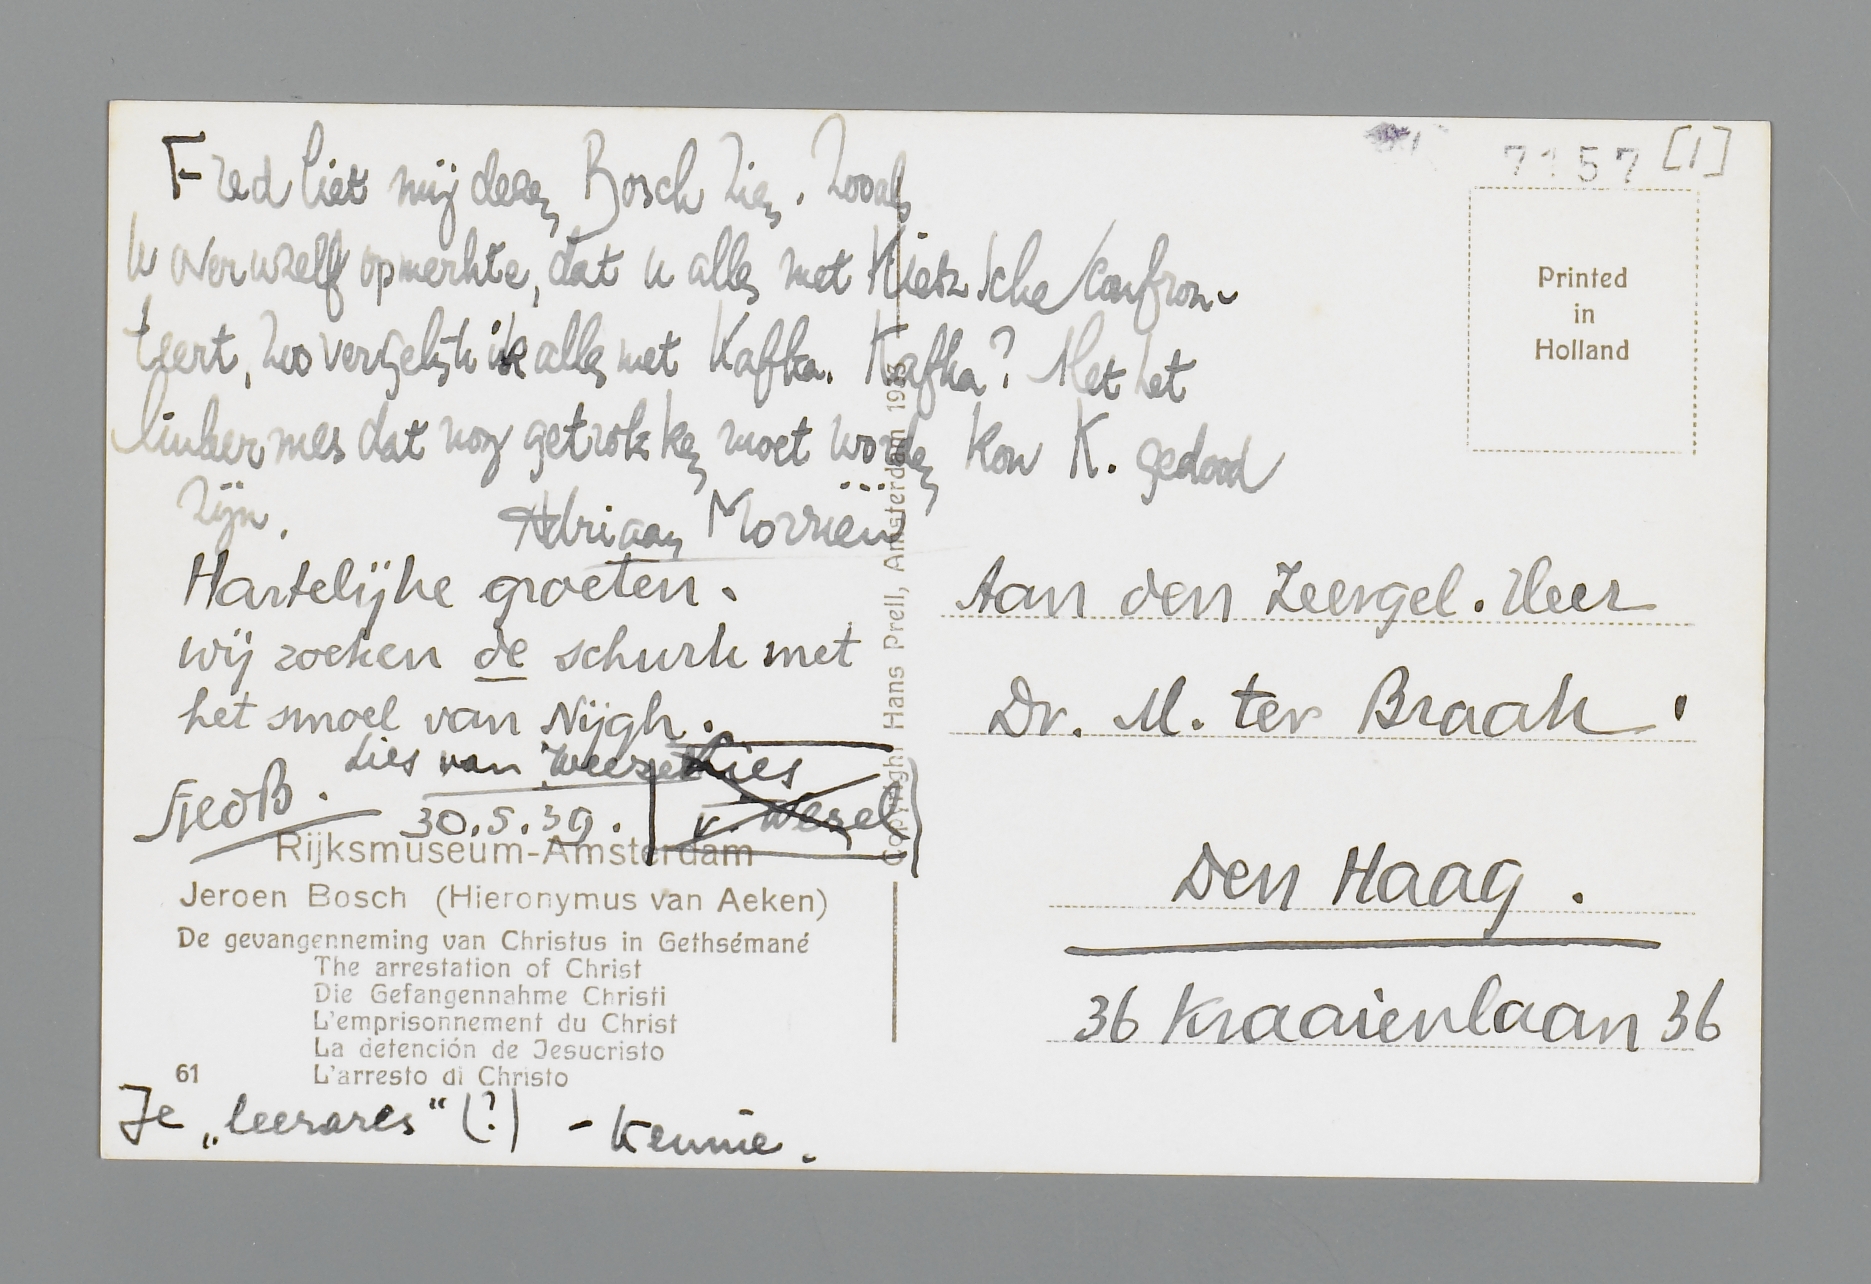 7157 [1]
Fred liet mij dezen Bosch zien. Zooals
u over uzelf opmerkte, dat u alles met Nietzsche confron-
teert, zoo vergelijk ik alles met Kafka. Kafka? Met het
linker mes dat nog getrokken moet worden kon K. gedood
zijn.
Adriaan Morriën
Hartelijke groeten.
wij zoeken de schurk met
het smoel van Nijgh.
Lies van
Lies
v. Wezel
FredB.
30.5.39.
Rijksmuseum-Amsterdam
Jeroen Bosch (Hieronymus van Aeken)
De gevangenneming van Christus in Gethsémané
The arrestation of Christ
Die Gefangennahme Christi
L'emprisonnement du Christ
La detención de Jesucristo
61 L'arresto di Christo
Je „leerares“ (?) - Kennie.
Copyright Hans Prell, Amsterdam
Printed
in
Holland
Aan den Zeergel. Heer
Dr. M. ter Braak
Den Haag.
36 Kraaienlaan 36